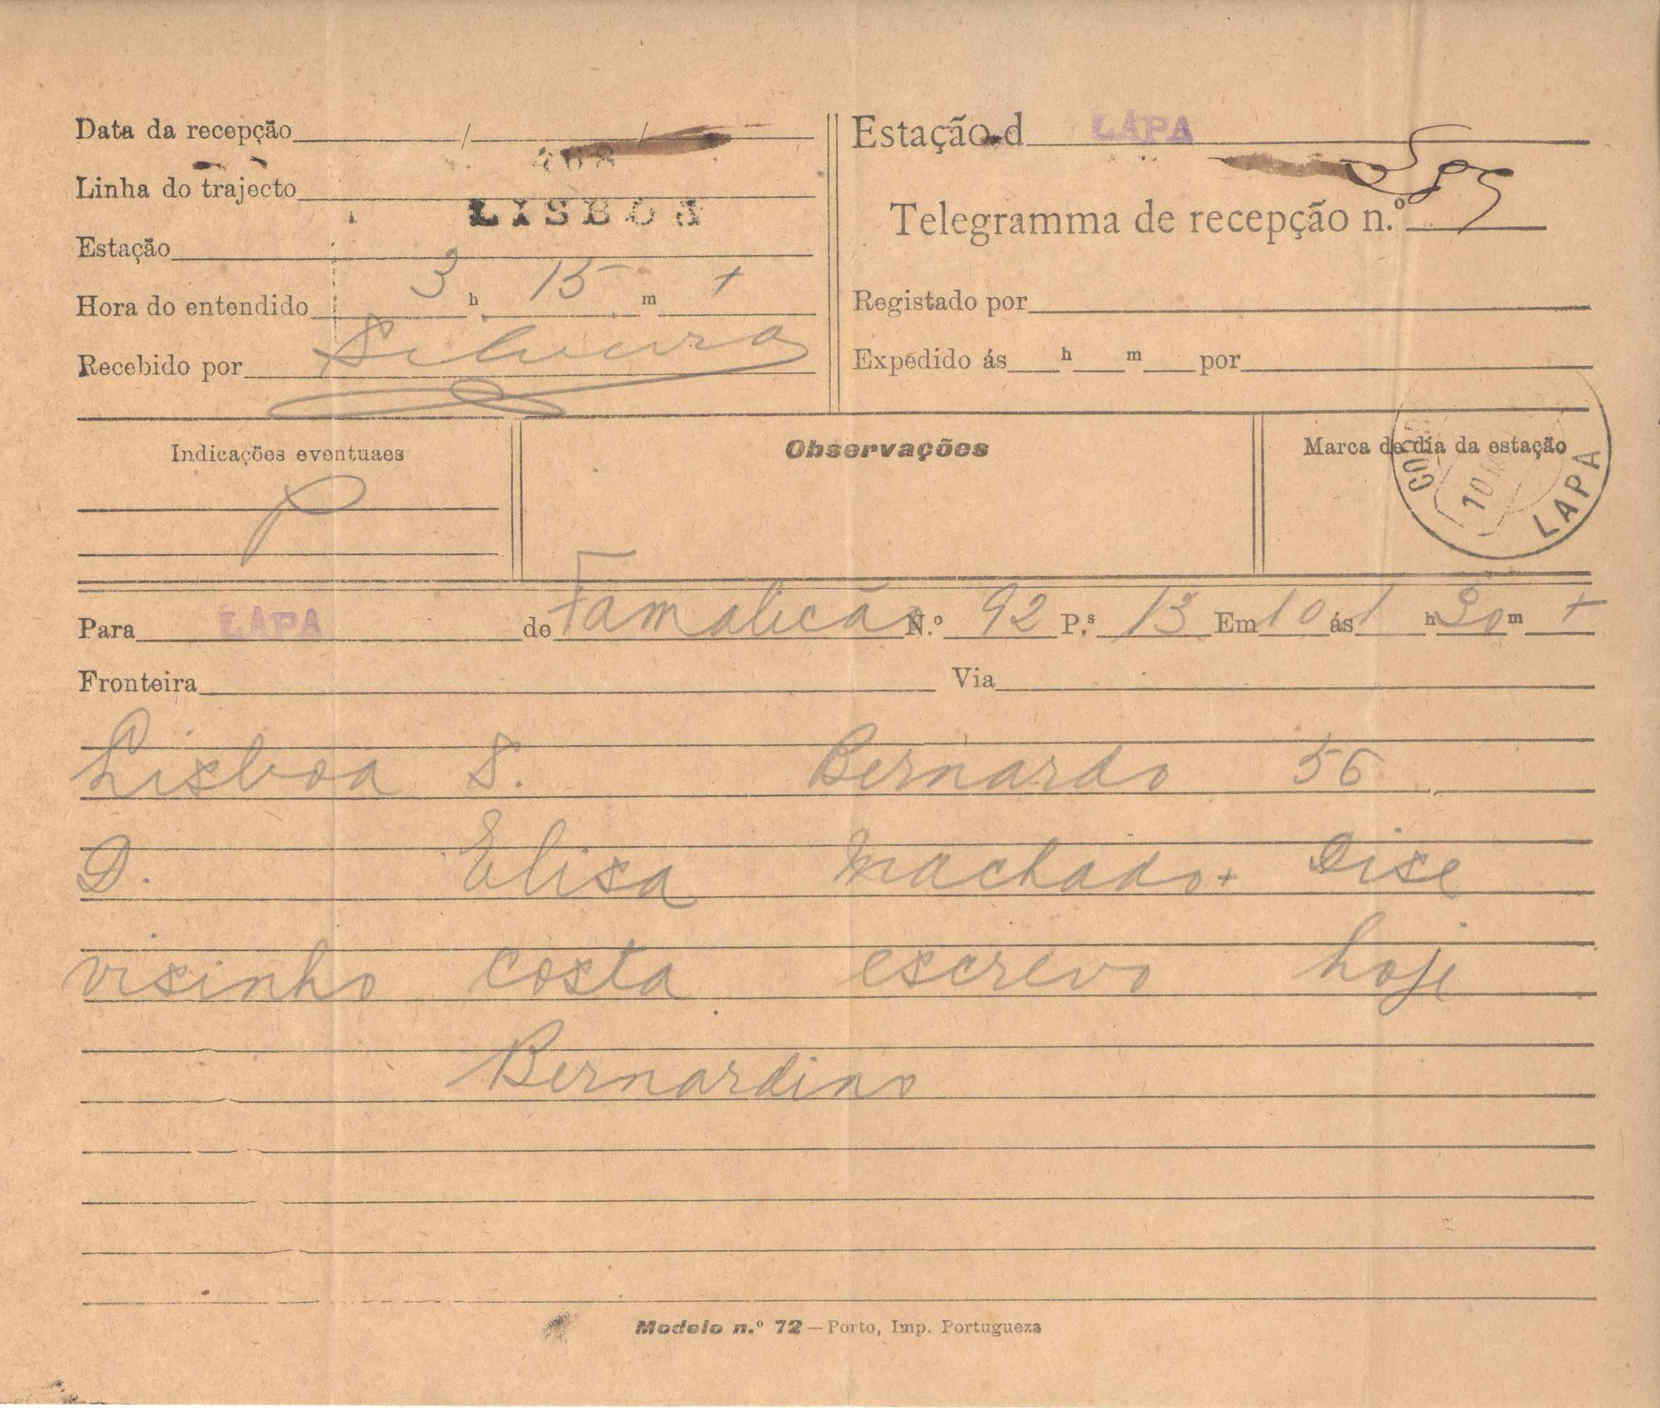 Data da recepção / /
Estação d LAPA
Linha do trajecto
LISBOA
Telegramma de recepção n.º
Estação
Hora do entendido 3 h 15 m +
Registado por
Recebido por Silveira
Expedido ás h m por
Indicações eventuaes
P
Observações
Marca do dia da estação
LAPA
Para LAPA de Famalicão N.º 92 P.s 13 Em 10 ás 1 h 30 m +
Fronteira Via
Lisboa S. Bernardo 56
D. Elisa Machado + Dise
visinho costa escrevo hoje
Bernardino
Modelo n.º 72 — Porto, Imp. Portugueza